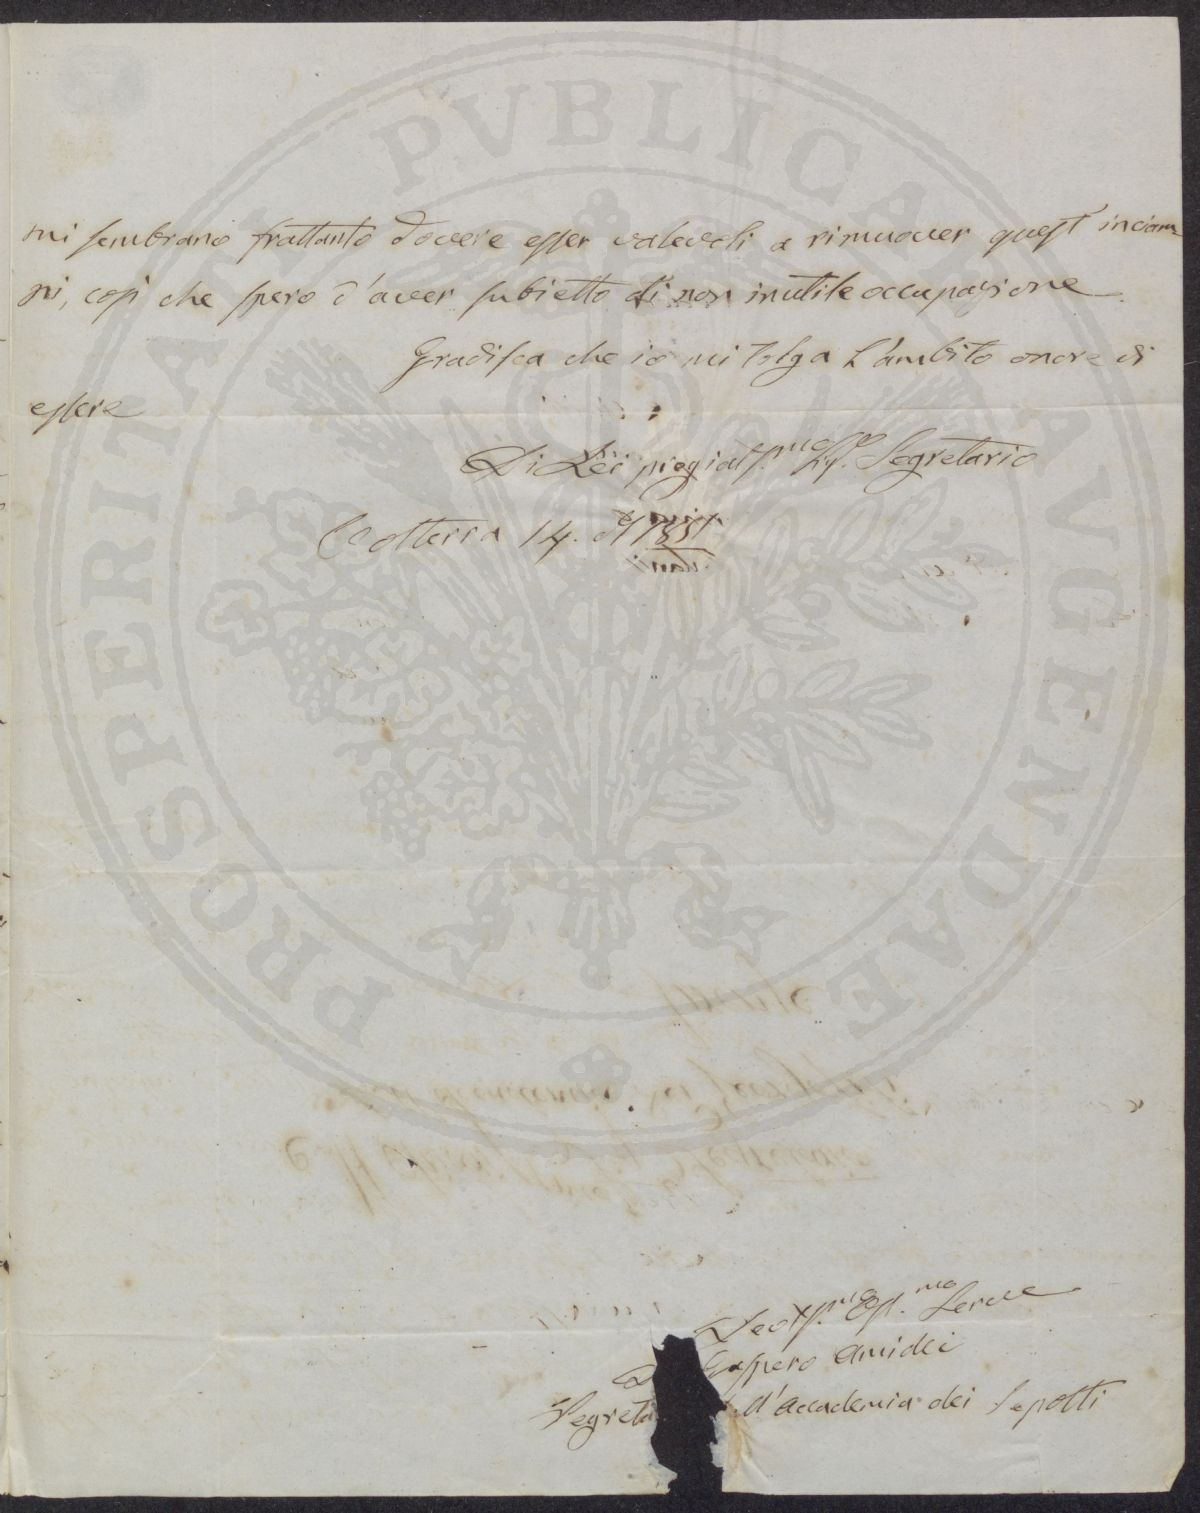 PROSPERITATI PVBLICAE AVGENDAE
mi sembrano frattanto dovere esser valevoli a rimuover quest'inciam
pi, così che spero d'aver subietto di non inutile occupazione
Gradisca che io mi tolga L'ambito onore di
essere
Di Lei pregiat.mo Sig. Segretario
Volterra 14.
Devot.mo Obl.mo Servo
D Gaspero Amidei
Segreta ll'Accademia dei Sepolti